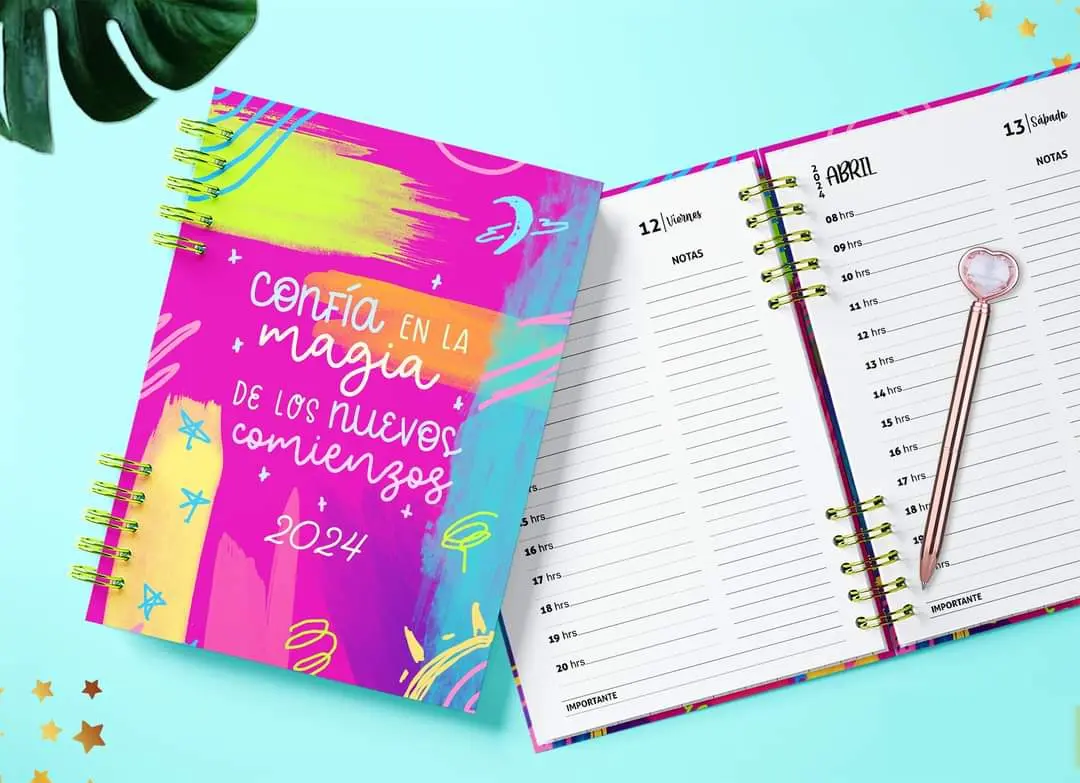 CONFÍA EN LA
magia
DE LOS NUEVOS
comienzos
2024
12 | Viernes
NOTAS
15 hrs
16 hrs
17 hrs
18 hrs
19 hrs
20 hrs
IMPORTANTE
2024 ABRIL
13 | Sábado
NOTAS
08 hrs
09 hrs
10 hrs
11 hrs
12 hrs
13 hrs
14 hrs
15 hrs
16 hrs
17 hrs
18 hrs
19
hrs
IMPORTANTE